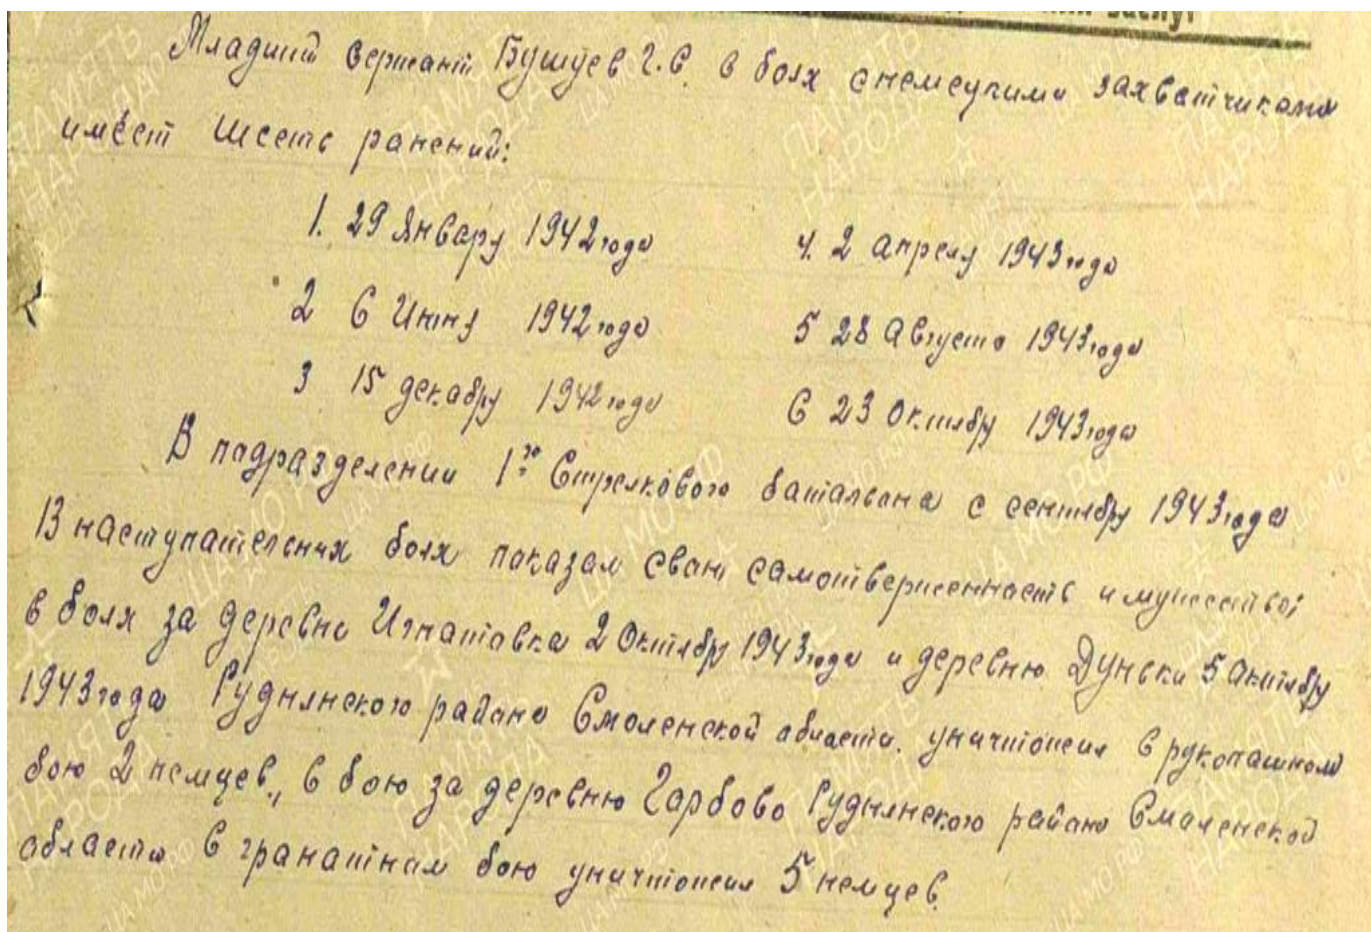 Младший сержант Бушуев Г.С. в боях с немецкими захватчиками
имеет шесть ранений:
1. 29 Январу 1942 года 4. 2 апрелу 1943 года
2 6 Июну 1942 года 5 28 Августа 1943 года
3 15 декабру 1942 года 6 23 октябру 1943 года
В подразделении 1го Стрелкового баталвона с сентябру 1943 года
В наступателсних боях показал сваю самотверженность и мужество;
в боях за деревню Игнатовка 2 Октябру 1943 года и деревню Дунвки 5 Октябру
1943 года Руднянского района Смоленской области. уничтожил в рукопашном
бою 2 немцев., в бою за деревню Гарбово Руднянского района Смоленской
области в гранатном бою уничтожил 5 немцев.
ПАМЯТЬ НАРОДА
ЦА МО РФ